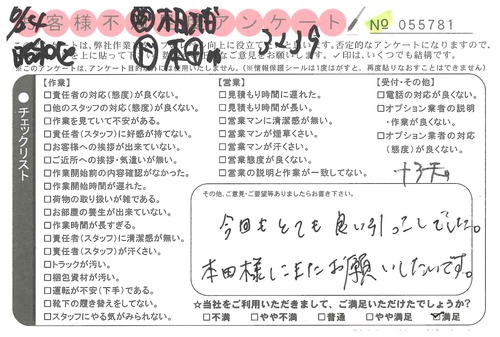 お客様不満足アンケート
No 055781
アンケートは、弊社作業 向上に役立て 否定的なアンケートになりますので、
を上に貼って ご意見をお願いします。✓印は、いくつでも結構です。
※このアンケートは、アンケート目的 には使用いたしません。(※情報保護シールは1度はがすと、再度貼りなおすことはできません)
チェックリスト
【作業】
□責任者の対応(態度)が良くない。
□他のスタッフの対応(態度)が良くない。
□作業を見ていて不安がある。
□責任者(スタッフ)に好感が持てない。
□お客様への挨拶が出来ていない。
□ご近所への挨拶・気遣いが無い。
□作業開始前の内容確認がなかった。
□作業開始時間が遅れた。
□荷物の取り扱いが雑である。
□お部屋の養生が出来ていない。
□作業時間が長すぎる。
□責任者(スタッフ)に清潔感が無い。
□責任者(スタッフ)が汗くさい。
□トラックが汚い。
□梱包資材が汚い。
□運転が不安(下手)である。
□靴下の履き替えをしてない。
□スタッフにやる気がみられない。
【営業】
□見積もり時間に遅れた。
□見積もり時間が長い。
□営業マンに清潔感が無い。
□営業マンが煙草くさい。
□営業マンが汗くさい。
□営業態度が良くない。
□営業の説明と作業が一致してない。
【受付・その他】
□電話の対応が良くない。
□オプション業者の説明
・作業が良くない。
□オプション業者の対応
(態度)が良くない。
その他、ご意見・ご要望等ありましたらお書き下さい。
今回もとても良い引っこしでした。
本田様にまたお願いしたいです。
☆当社をご利用いただきまして、ご満足いただけたでしょうか?
□不満 □やや不満 □普通 □やや満足 ☑満足